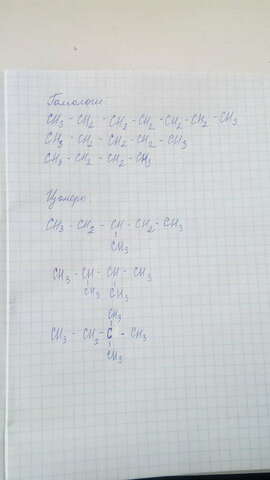 Гомологи
CH3 - CH2 - CH2 - CH2 - CH2 - CH2 - CH3
CH3 - CH2 - CH2 - CH2 - CH3
CH3 - CH2 - CH2 - CH3
Изомеры
CH3 - CH2 - CH - CH2 - CH3
CH3
CH3 - CH - CH - CH3
CH3 CH3
CH3
CH3 - CH2 - C - CH3
CH3